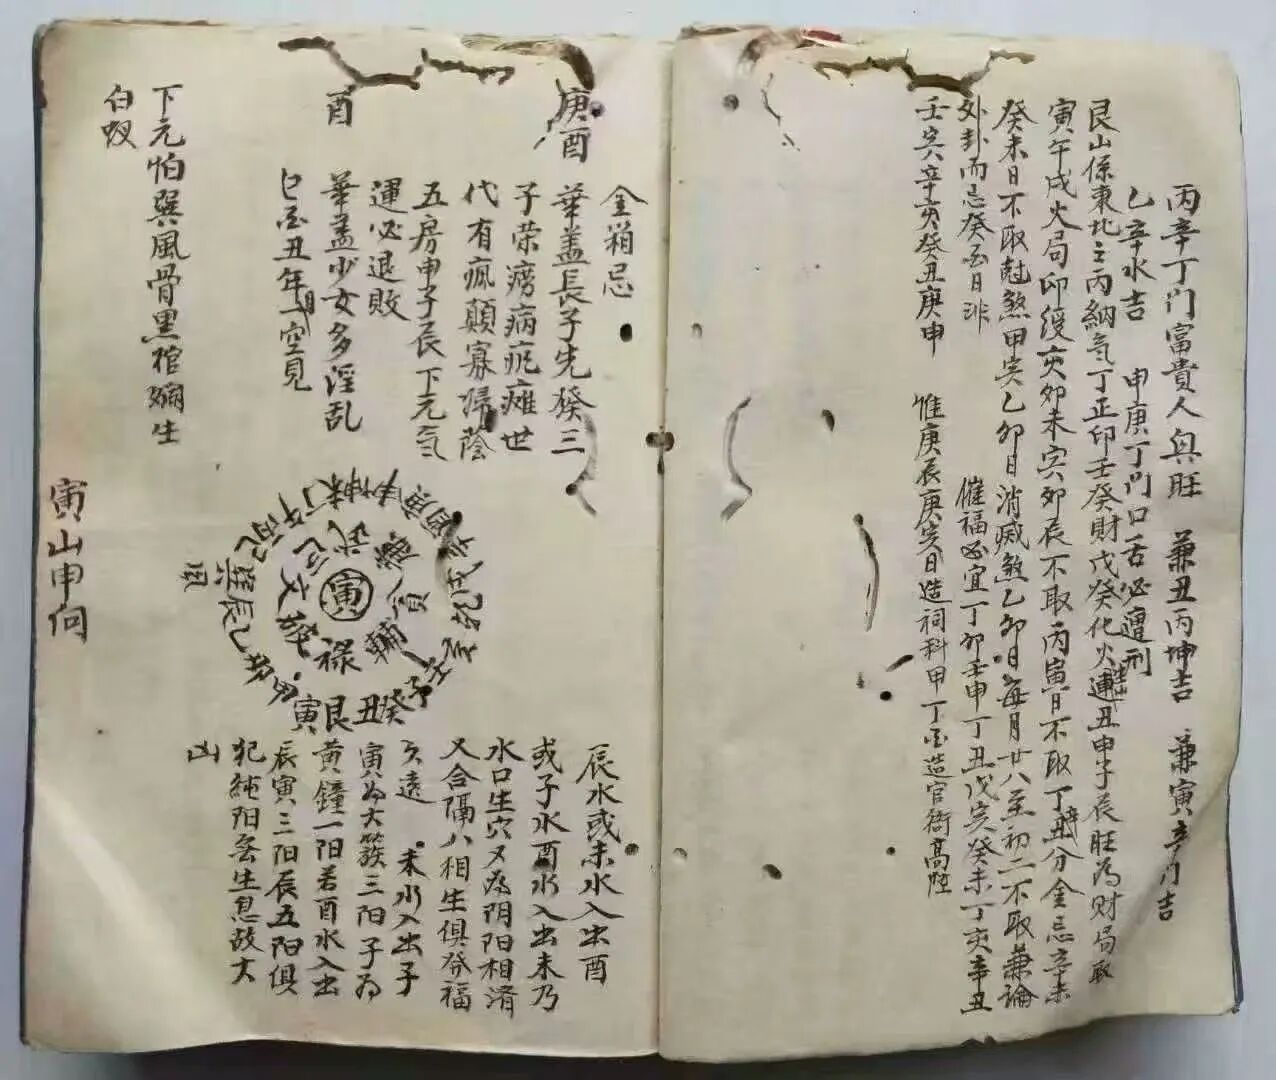 丙辛丁门富貴人興旺 兼丑丙坤吉 兼寅辛门吉
乙辛水吉 申庚丁门口舌必遭刑
艮山係東北之丙納气丁正印壬癸財戊癸化火連丑申子辰旺為财局取
寅午戌火局印绶亥卯未寅卯辰不取丙寅日不取丁時分金忌辛未
癸未日不取尅煞甲寅乙卯日消滅煞乙卯日每月廿八至初二不取兼論
外卦而忌癸酉日非 催福必宜丁卯壬申丁丑戊寅癸未丁亥辛丑
壬寅辛亥癸丑庚申 惟庚辰庚寅日造祠科甲丁酉造官衙高陞
金箱忌
庚酉
華盖長子先發三
子荣痨病疕瘫世
代有瘋顛寡婦蔭
五房申子辰下元气
運必退敗
酉
華盖少女多淫乱
巳酉丑年月一空見
下元怕巽風骨黑棺爛生
白蚁
寅山申向
寅
禄
輔
武
文
寅艮丑癸子壬
巽辰乙
風
辰水或未水入出酉
或子水酉水入出未乃
水口生穴又為阴阳相濟
又合隔八相生俱發福
久遠 未水入出子
寅為大簇三阳子為
黄鐘一阳若酉水入出
辰寅三阳辰五阳俱
犯純阳無生息故大
凶